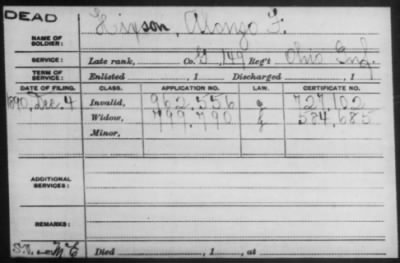 DEAD
NAME OF SOLDIER: Hixson, Alonzo F.
SERVICE: Late rank, Co. G, 149 Reg't Ohio Inf.
TERM OF SERVICE: Enlisted , 1 Discharged , 1
DATE OF FILING. CLASS. APPLICATION NO. LAW. CERTIFICATE NO.
1890, Dec. 4 Invalid, 962.556 727,102
Widow, 799.790 584,685
Minor,
ADDITIONAL SERVICES:
REMARKS:
Died , 1 , at